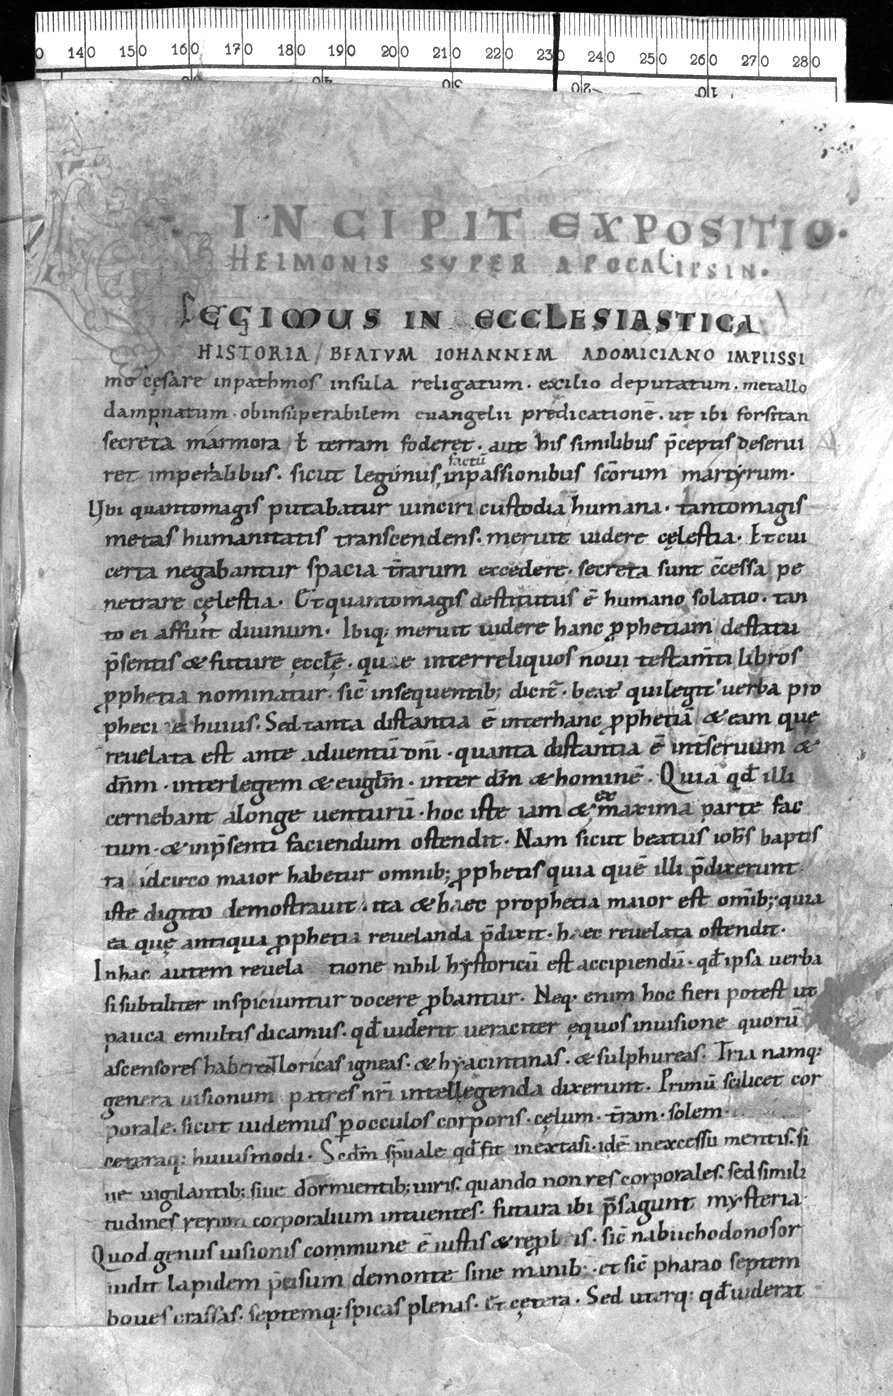 140 150 160 170 180 190 200 210 220 230 240 250 260 270 280
INCIPIT EXPOSITIO·
HEIMONIS SVPER APOCALIPSIN·
LEGIMUS IN ECCLESIASTICA
HISTORIA BEATVM IOHANNEM ADOMICIANO IMPIISSI
mo cęsare inpathmos insula religatum· exilio deputatum· metallo
dampnatum· obinsuperabilem euangelii predicationē· ut ibi forsitan
secreta marmora ł terram foderet· aut his similibus p̄ceptis deserui
ret imperialibus· sicut legimus factū inpassionibus scōrum martyrum·
Vbi quantomagis putabatur uinciri custodia humana· tantomagis
metas humanitatis transcendens· meruit uidere cęlestia· Et cui
certa negabantur spacia t̄rarum excedere· secreta sunt c̄cessa pe
netrare cęlestia· Et quantomagis destitutus ē humano solatio· tan
to ei affuit diuinum· Ibiq; meruit uidere hanc ꝓphetiam destatu
p̄sentis & future ęccłę· quae interreliquos noui testam̄ti libros
ꝓphetia nominatur· sic̄ insequentib; dicit̄· beat' quilegit uerba pro
pheciae huius· Sed tanta distantia ē interhanc ꝓphetiā & eam que
reuelata est ante aduentū dn̄i· quanta distantia ē int̄seruum &
dn̄m· interlegem & eugłm̄· inter dn̄m & hominē· Quia qđ illi
cernebant alonge uenturū· hoc iste iam & ex maxima parte fac
tum· & inp̄senti faciendum ostendit· Nam sicut beatus ioħs baptis
ta idcirco maior habetur omnib; ꝓphetis quia quē illi p̄dixerunt
iste digito demostrauit· ita & haec prophetia maior est om̄ib; quia
ea quę antiqua ꝓphetia reuelanda p̄dixit· haec reuelata ostendit·
Inhac autem reuela tione nihil hystoricū est accipiendū· qđ ipsa uerba
si subtiliter inspiciuntur docere ꝓbantur· Neq· enim hoc fieri potest ut
pauca emultis dicamus· qđ uiderit ueraciter ęquos inuisione quorū
ascensores haberent loricas igneas· & hyacintinas· & sulphureas· Tria namq;
genera uisionum patres nr̄i intellegenda dixerunt· Primū scilicet cor
porale· sicut uidemus ꝑocculos corporis· cęlum· t̄ram· solem·
ceteraq; huiusmodi· Scđm sp̄uale qđ fit inextasi· idē inexcessu mentis· si
ue uigilantib; siue dormientib; uiris· quando non res corporales· sed simili
tudines rerum corporalium intuentes· futura ibi p̄sagunt mysteria
Quod genus uisionis commune ē iustis & reꝓbis· sic̄ nabuchodonosor
uidit lapidem p̄cisum demonte sine manib; et sic̄ pharao septem
boues crassas· septemq; spicas plenas· Et cętera· Sed uterq; qđ uiderat